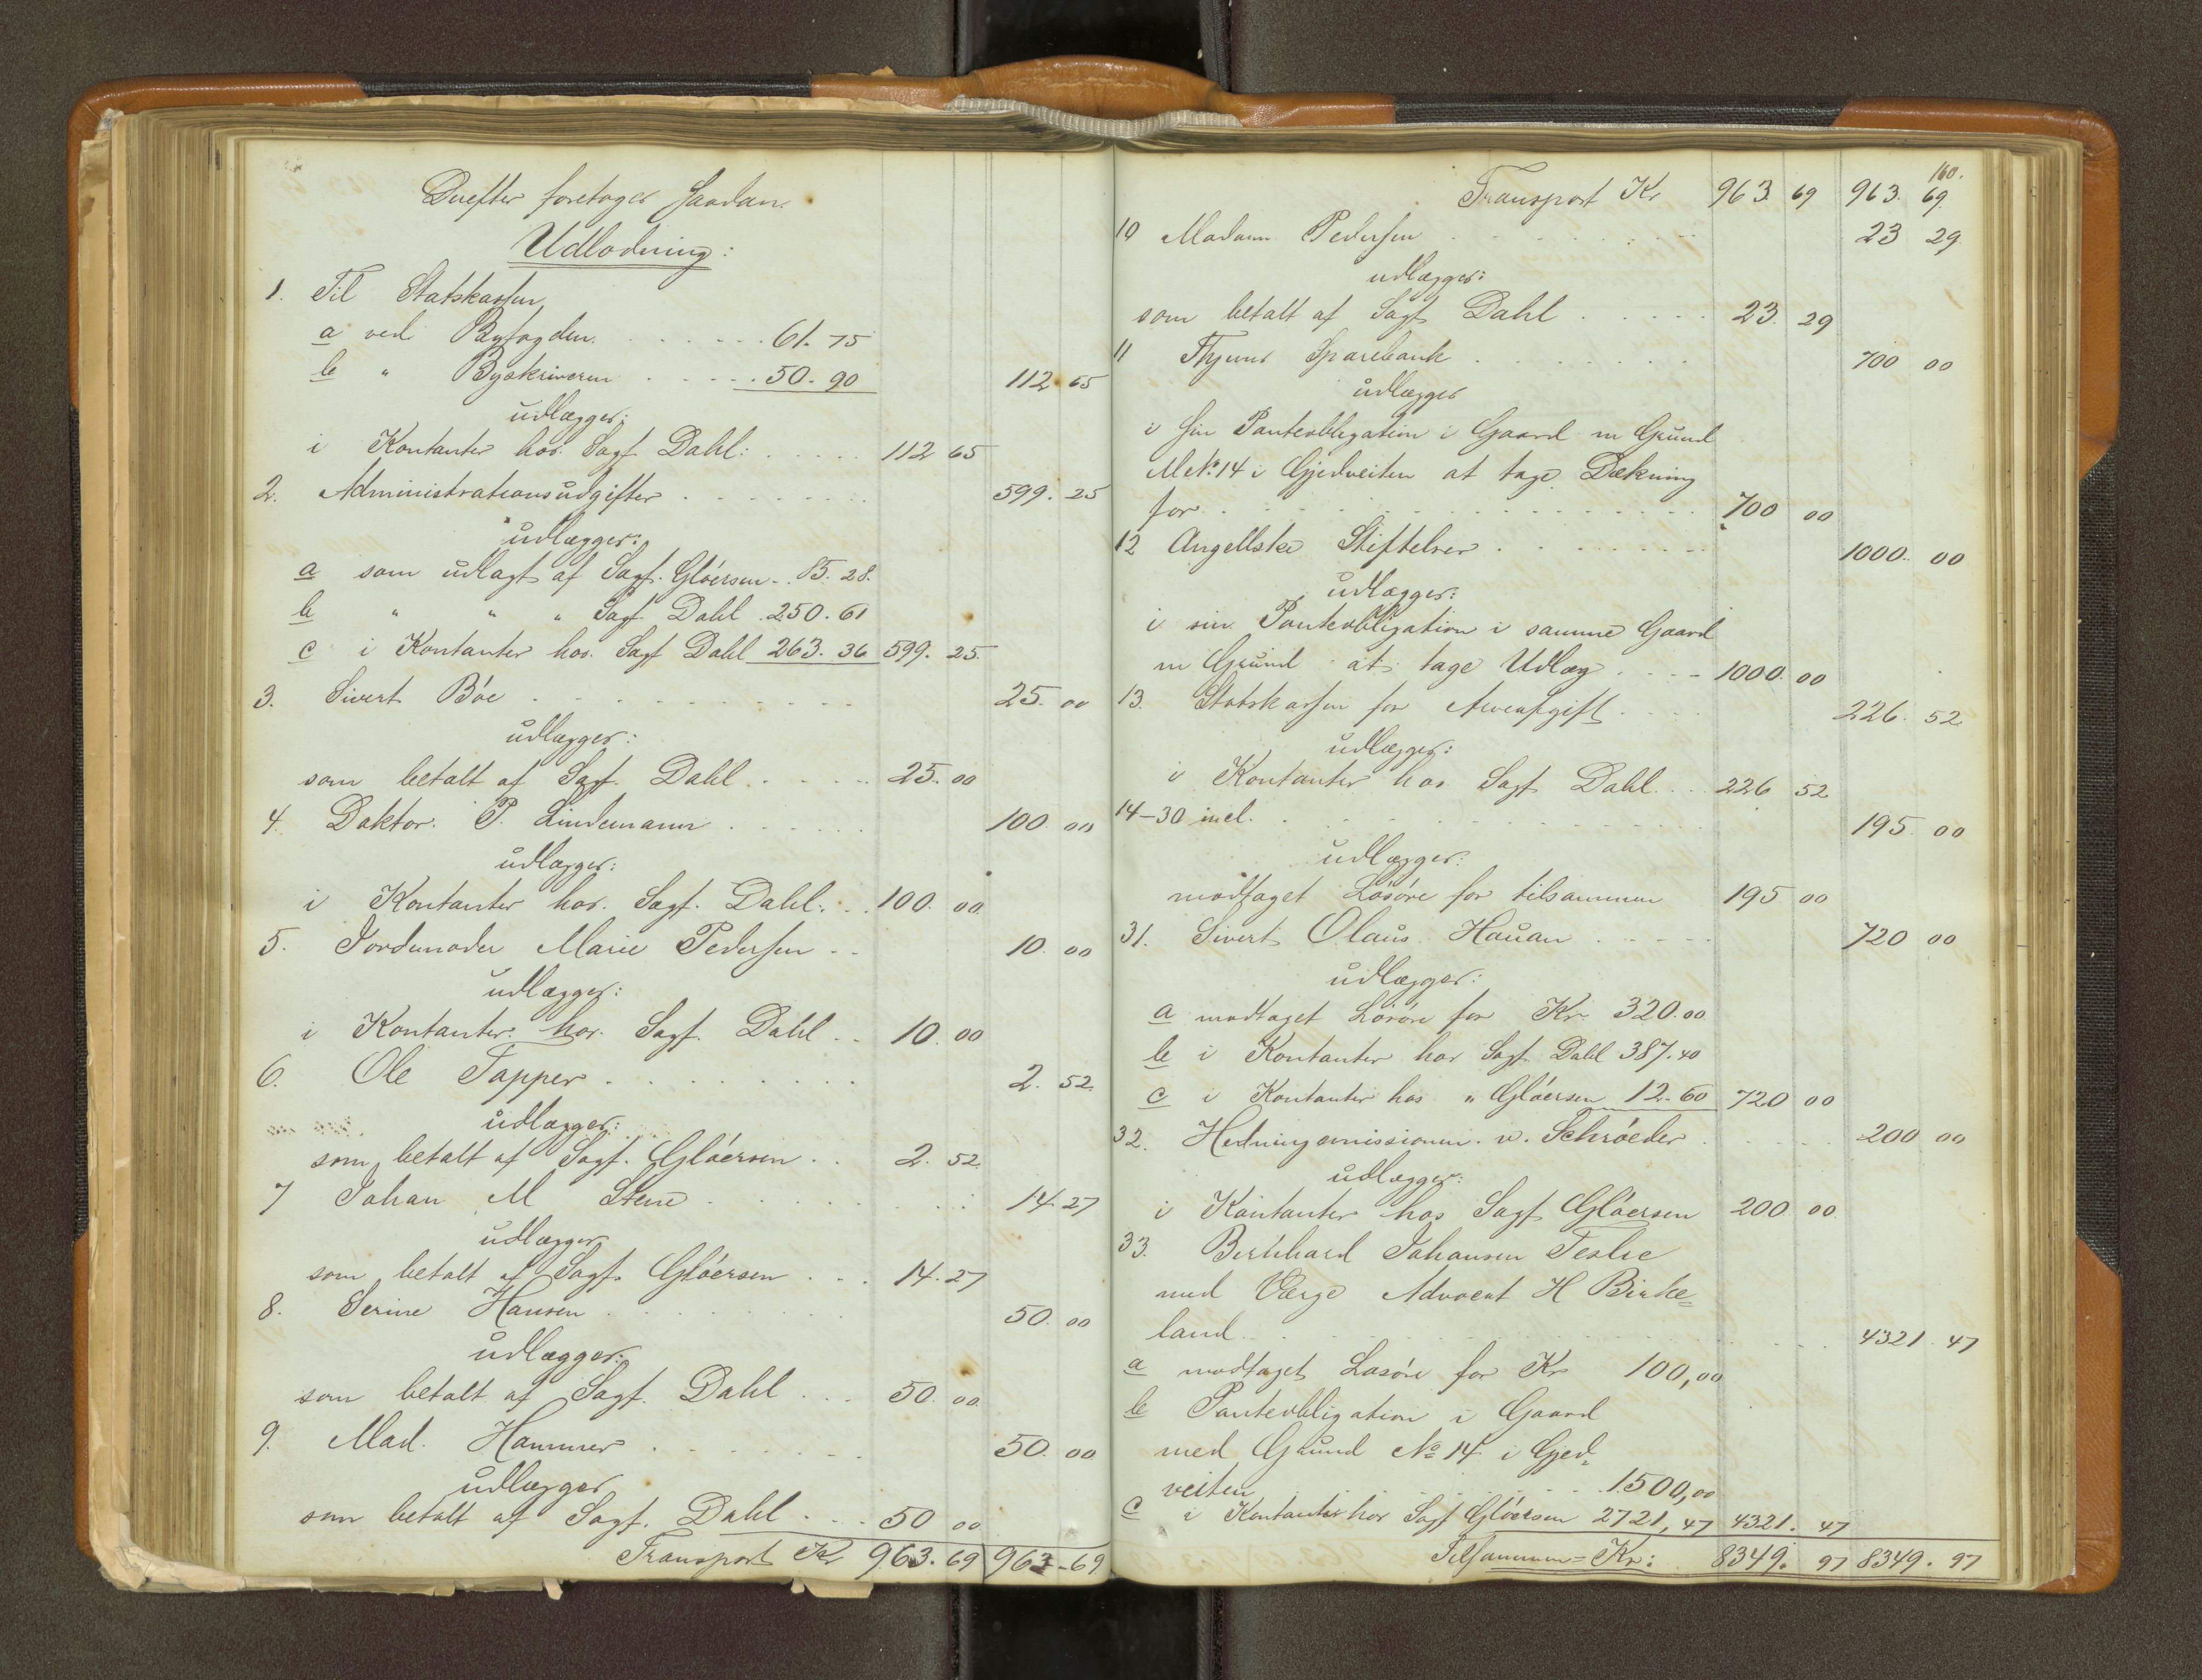 Derefter foretoges saadan
Udlodning:
1. Til Statskassen
a ved Byfogden. . . . . . . 61. 75
b " Byskriveren . . . . . 50. 90 112. 65
udlægges:
i Kontanter hos. Sagf. Dahl: . . . . . 112 65
2. Administrationsudgifter . . . . . . . . 599. 25
udlægges:
a som udlagt af Sagf. Gløersen . . 85. 28.
b " " " Sagf Dahl . 250. 61
c i Kontanter hos. Sagf Dahl 263. 36 599. 25.
3. Sivert Bøe . . . . . . . . . . 25. 00
udlægges:
som betalt af Sagf. Dahl . . . . . 25. 00
4. Doktor. P. Lindemann . . . . . . 100 00
udlægges:
i Kontanter hos. Sagf. Dahl: . . 100. 00.
5. Jordemoder Marie Pedersen . . 10. 00
udlægges:
i Kontanter. hos. Sagf. Dahl . . 10. 00
6. Ole Tapper . . . . . . . . . 2. 52.
udlægges:
som betalt af Sagf. Gløersen . . 2. 52.
7 Johan M Stene . . . . . . . 14. 27
udlægges
som betalt af Sagf. Gløersen . . . 14. 27
8. Serine Hansen . . . . . . . 50. 00
udlægges:
som betalt af Sagf. Dahl . . 50. 00.
9. Mad. Hammer . . . . . . . . 50. 00.
udlægges
som betalt af Sagf. Dahl . . . 50 00
Transport Kr 963. 69 963 - 69
160.
Transport Kr 963. 69 963. 69.
10 Madam Pedersen . . . . . . . . 23 29.
udlægges:
som betalt af Sagf. Dahl . . . . . 23. 29
11 Sparebank . . . . . . . . 700 00
udlægges
i sin Panteobligation i Gaard m Grund
M No. 14 i Gjedveiten at tage Dækning
for . . . . . . . . . . . . . . . . 700 00
12 Angellske Stiftelser . . . . . . . . 1000. 00
udlægges:
i sin Panteobligation i samme Gaard
m Grund at tage Udlæg . . . . 1000. 00
13. Statskassen for Arveafgift . . . . 226. 52.
udlægges:
i Kontanter hos Sagf Dahl . . . 226 52
14-30 incl. . . . . . . . . . . . . . . 195. 00
udlægges:
modtaget Løsøre for tilsammen 195 00
31. Sivert Olaus Hauan . . . . . 720 00
udlægges:
a modtaget Løsøre for Kr. 320. 00
b i Kontanter hos Sagf Dahl 387. 40
c i Kontanter hos " Gløersen 12. 60 720 00
32. Hedningemissionen. v. Schrøeder . . . . . . 200 00
udlægges:
i Kontanter hos Sagf Gløersen 200 00.
33. Bernhard Johansen Teslie
med Værge Advocat H Birke=
land . . . . . . . . . . . . . . . . . . 4321. 47
a modtaget Løsøre for Kr 100,00
b Panteobligation i Gaard
med Grund No 14 i Gjed=
veiten . . . . . . . . . 1500,00
c i Kontanter hos Sagf Gløersen 2721,47 4321. 47
Tilsammen = Kr: 8349. 97 8349. 97